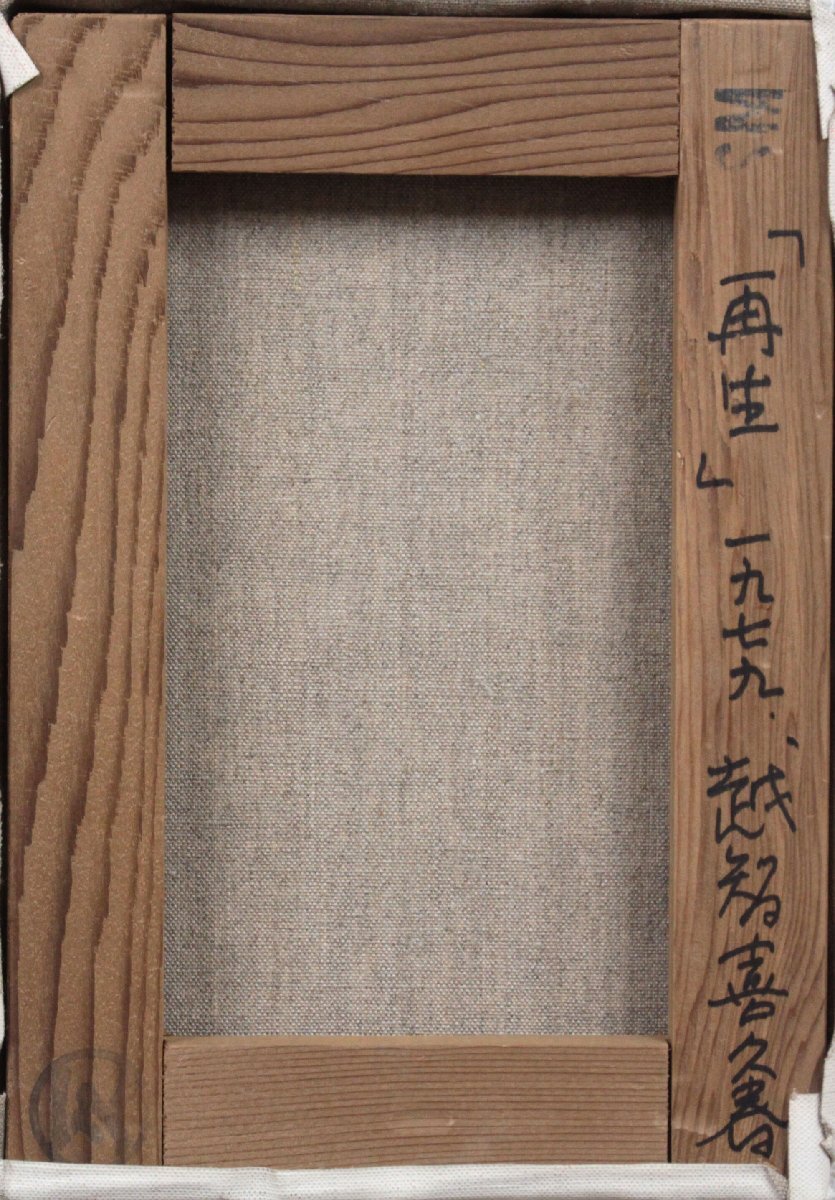 SM
「再生」一九七九、越智喜久春